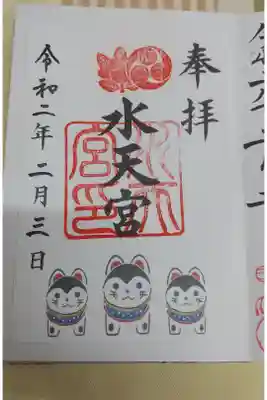 奉拝
水天宮
令和二年二月三日
水天宮印